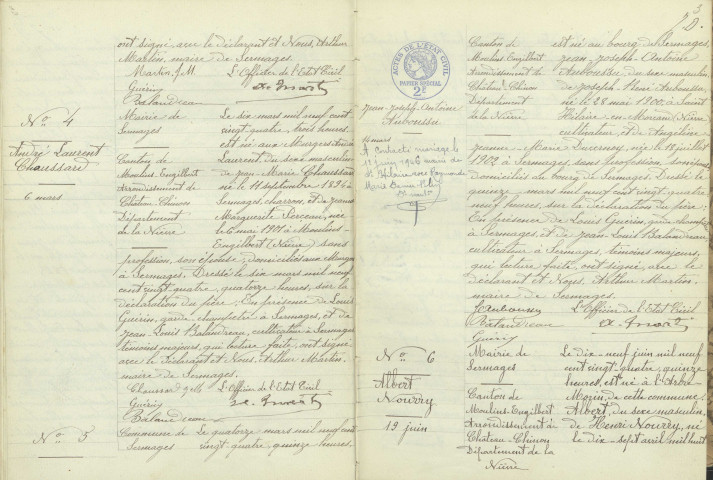 ont signé avec le déclarant et Nous, Arthur
Martin, maire de Sermages.
Martin J.M. L'Officier de l'Etat Civil
Guérin
Balandreau
No 4
André Laurent
Chaussard
6 mars
Mairie de
Sermages
Canton de
Moulins-Engilbert
Arrondissement de
Château-Chinon
Département
de la Nièvre
Le dix mars mil neuf cent
vingt-quatre, trois heures,
est né aux Murges André
Laurent, du sexe masculin
de Jean-Marie Chaussard
né le 11 septembre 1896 à
Sermages, charron, et de Jeanne
Marguerite née
le 6 mai 1901 à Moulins-
Engilbert (Nièvre) sans
profession, son épouse, domiciliés aux Murges
à Sermages. Dressé le dix mars mil neuf
cent vingt-quatre, quatorze heures, sur la
déclaration du père. En présence de Louis
Guérin, garde champêtre à Sermages, et de
Jean-Louis Balandreau, cultivateur à Sermages
témoins majeurs, qui lecture faite, ont signé
avec le déclarant et Nous, Arthur Martin,
maire de Sermages.
Chaussard L'Officier de l'Etat Civil
Guérin
Balandreau
No 5
Commune de
Sermages
Le quatorze mars mil neuf cent
vingt-quatre, quinze heures,
ACTES DE L'ETAT CIVIL
PAPIER SPECIAL
2F
Jean-Joseph-Antoine
Auboussu
14 mars
Canton de
Moulins-Engilbert
Arrondissement de
Château-Chinon
Département
de la Nièvre
est né au bourg de Sermages,
Jean-Joseph-Antoine
Auboussu, du sexe masculin
de Joseph-René Auboussu,
né le 28 mai 1900 à Saint
Hilaire-en-Morvan, Nièvre
cultivateur, et de Angéline
Jeanne-Marie née le 18 juillet
1902 à Sermages, sans profession, son épouse
domiciliés au bourg de Sermages. Dressé le
quinze mars mil neuf cent vingt-quatre
neuf heures, sur la déclaration du père.
En présence de Louis Guérin, garde champêtre
à Sermages, et de Jean-Louis Balandreau,
cultivateur à Sermages, témoins majeurs,
qui lecture faite, ont signé avec le
déclarant et Nous, Arthur Martin,
maire de Sermages.
L'Officier de l'Etat Civil
Balandreau
Guérin
No 6
Albert
Nourry
19 juin
Mairie de
Sermages
Canton de
Moulins-Engilbert
Arrondissement de
Château-Chinon
Département de la
Nièvre
Le dix-neuf juin mil neuf
cent vingt-quatre, quinze
heures, est né à l'Arbre
Morin, de cette commune,
Albert, du sexe masculin,
de Henri Nourry, né
le dix-sept avril mil huit